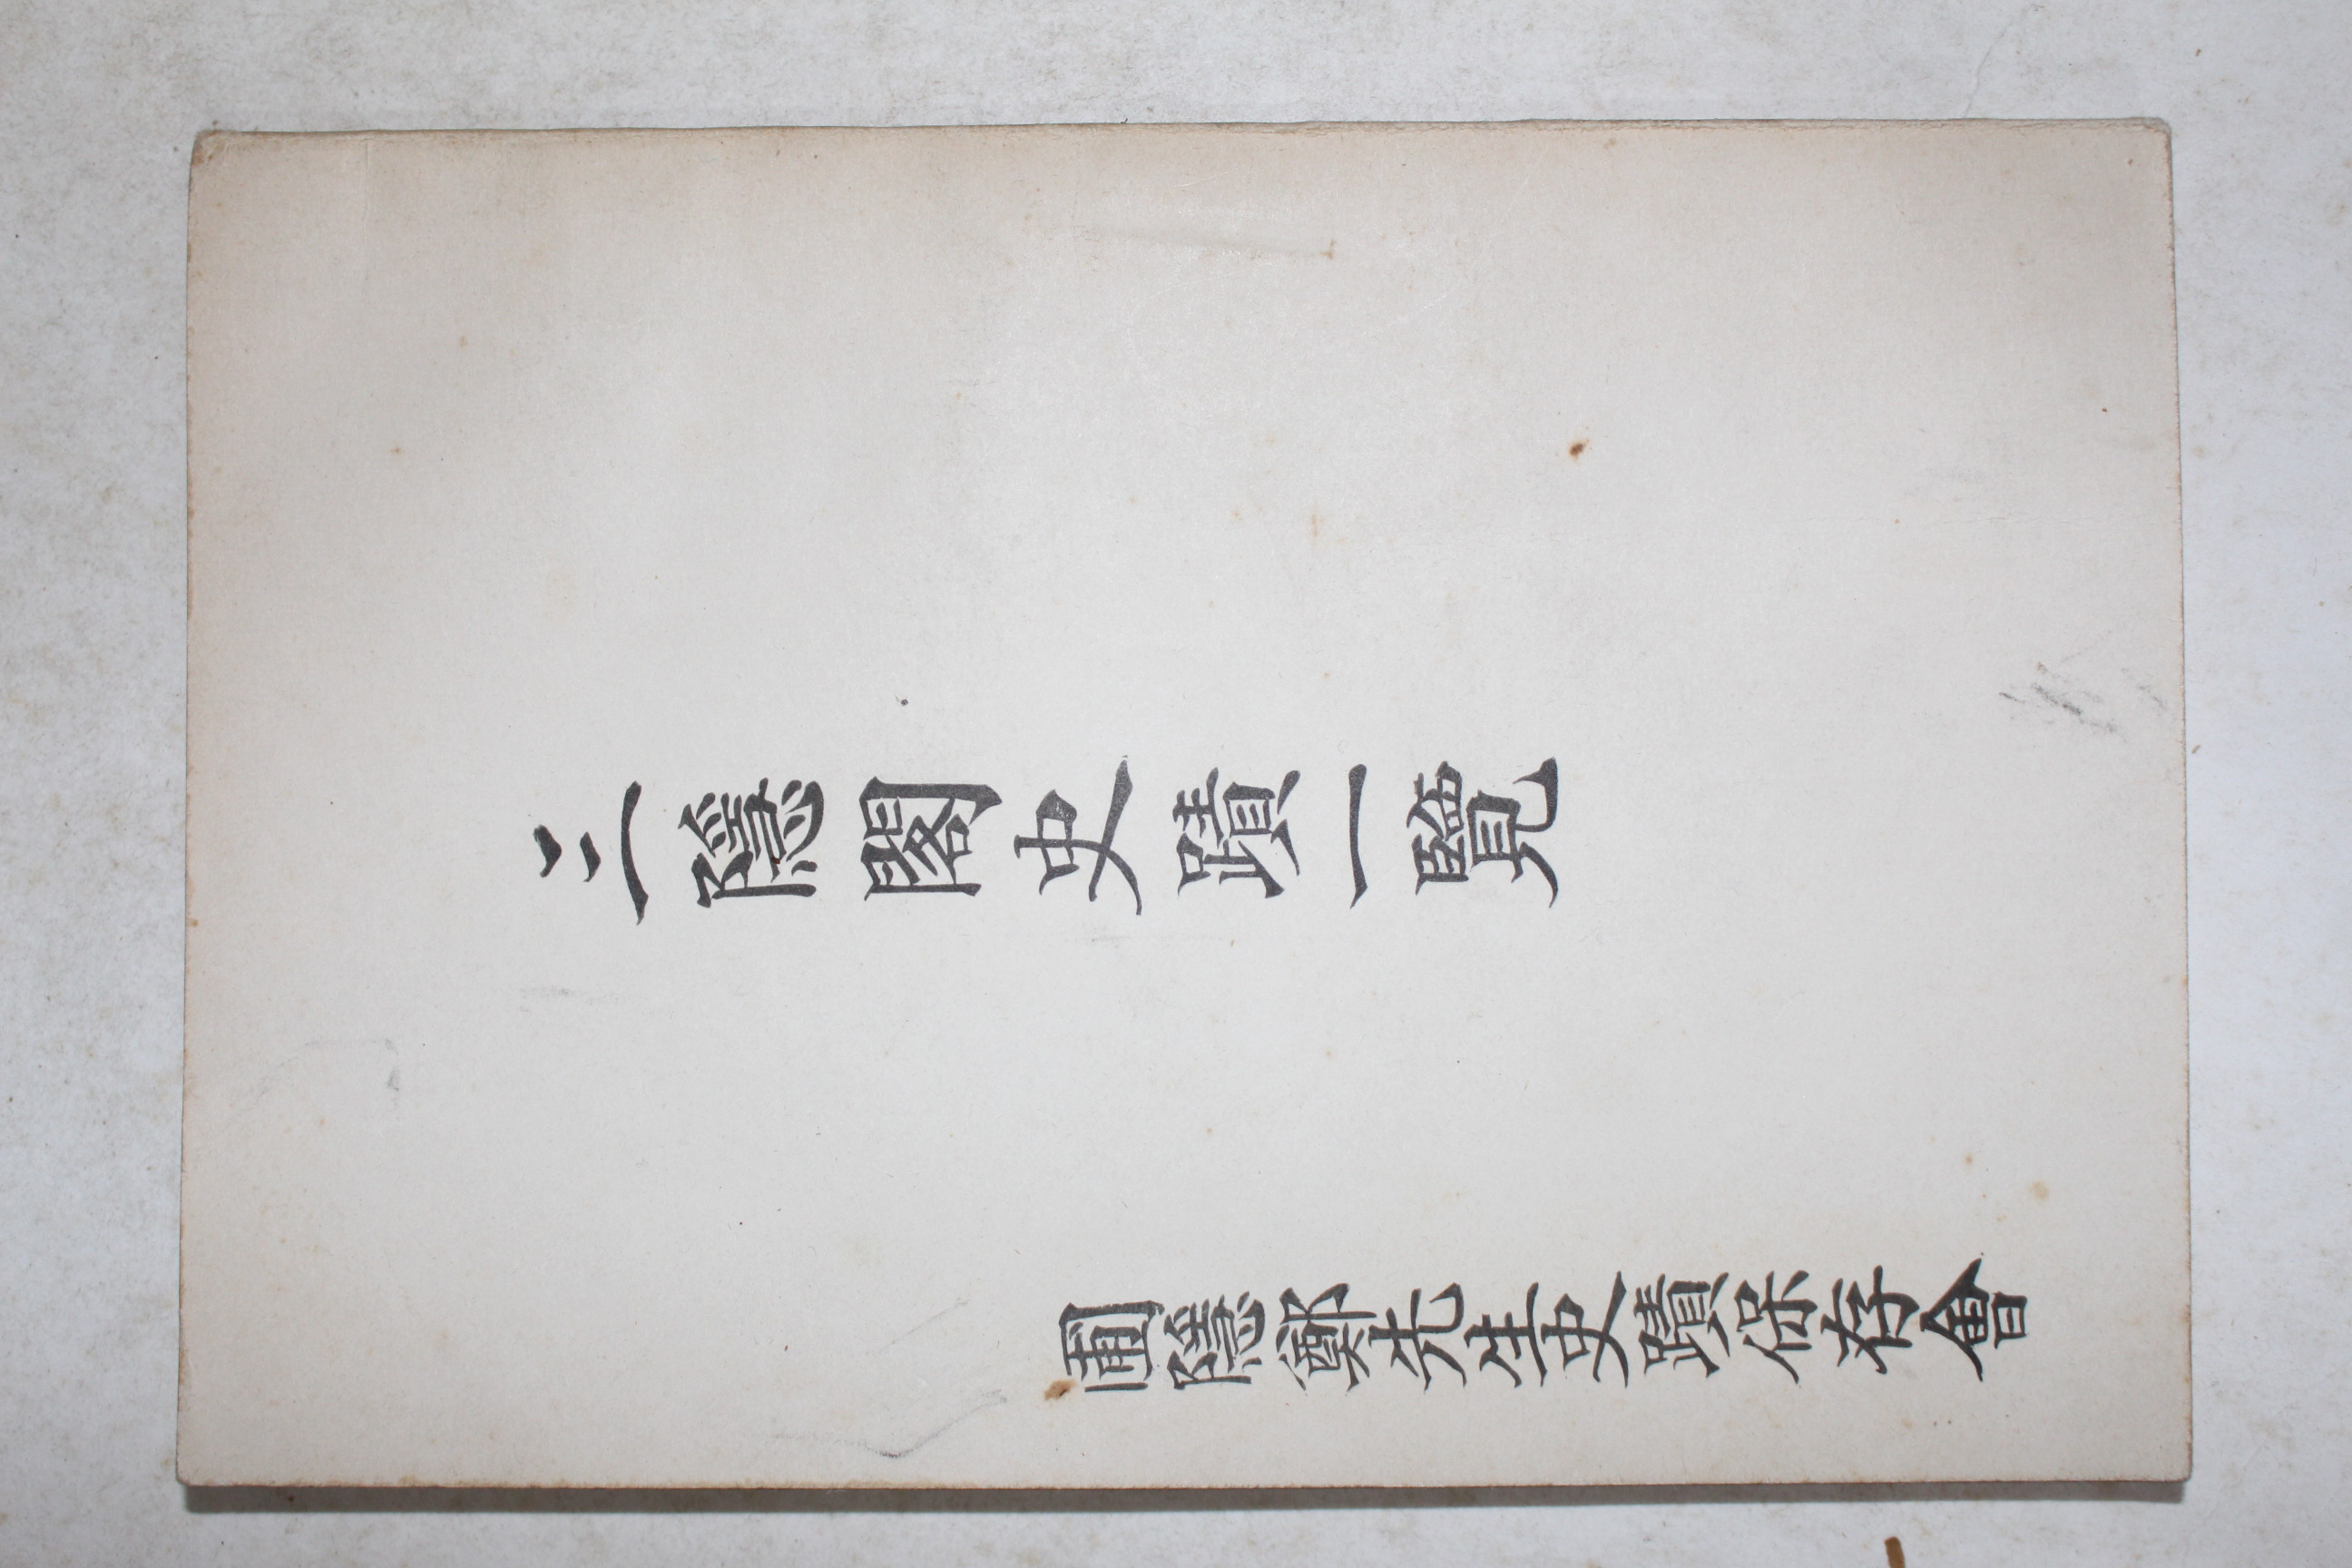 三隱閣史蹟一覽
圃隱鄭先生史蹟保存會